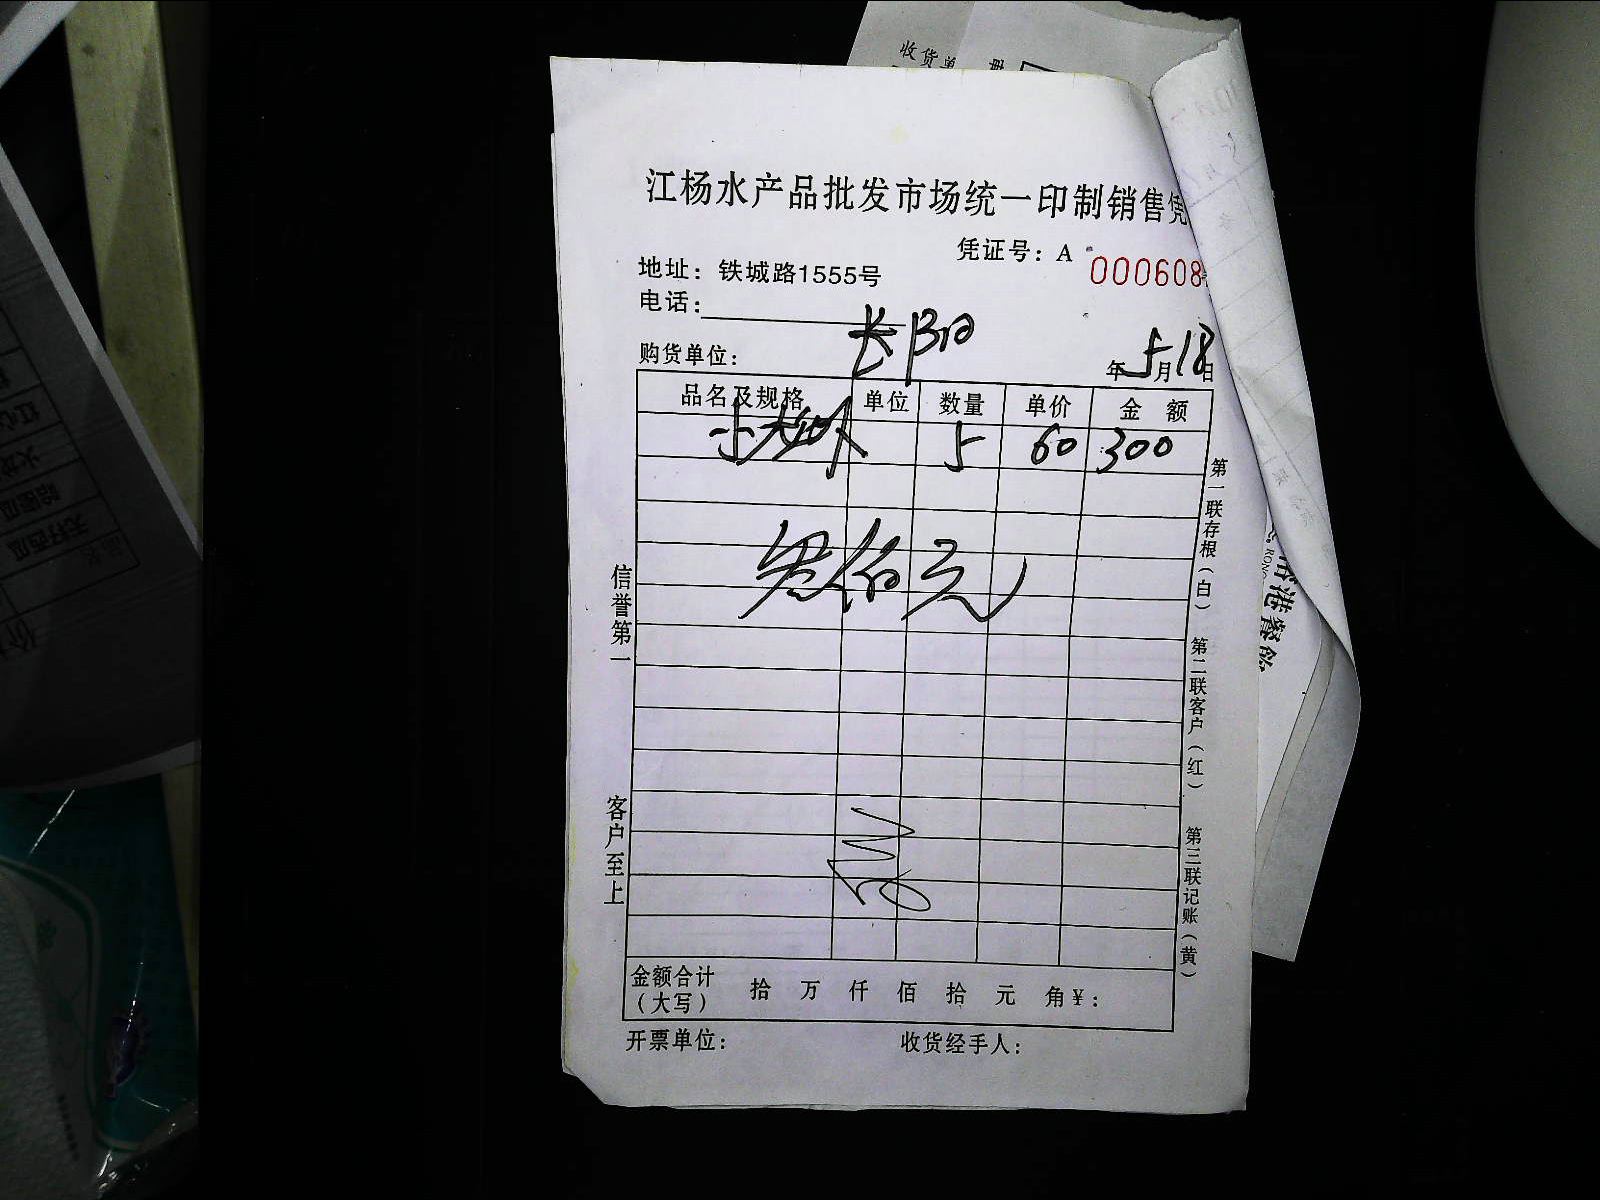 收货单
江杨水产品批发市场统一印制销售凭
凭证号：A 000608
地址：铁城路1555号
电话：
购货单位：长阳 年5月18日
品名及规格 单位 数量 单价 金额
小 5 60 300
叁佰元
信誉第一
客户至上
第一联存根（白）
第二联客户（红）
第三联记账（黄）
金额合计（大写） 拾 万 仟 佰 拾 元 角 ¥：
开票单位： 收货经手人：
港餐饮